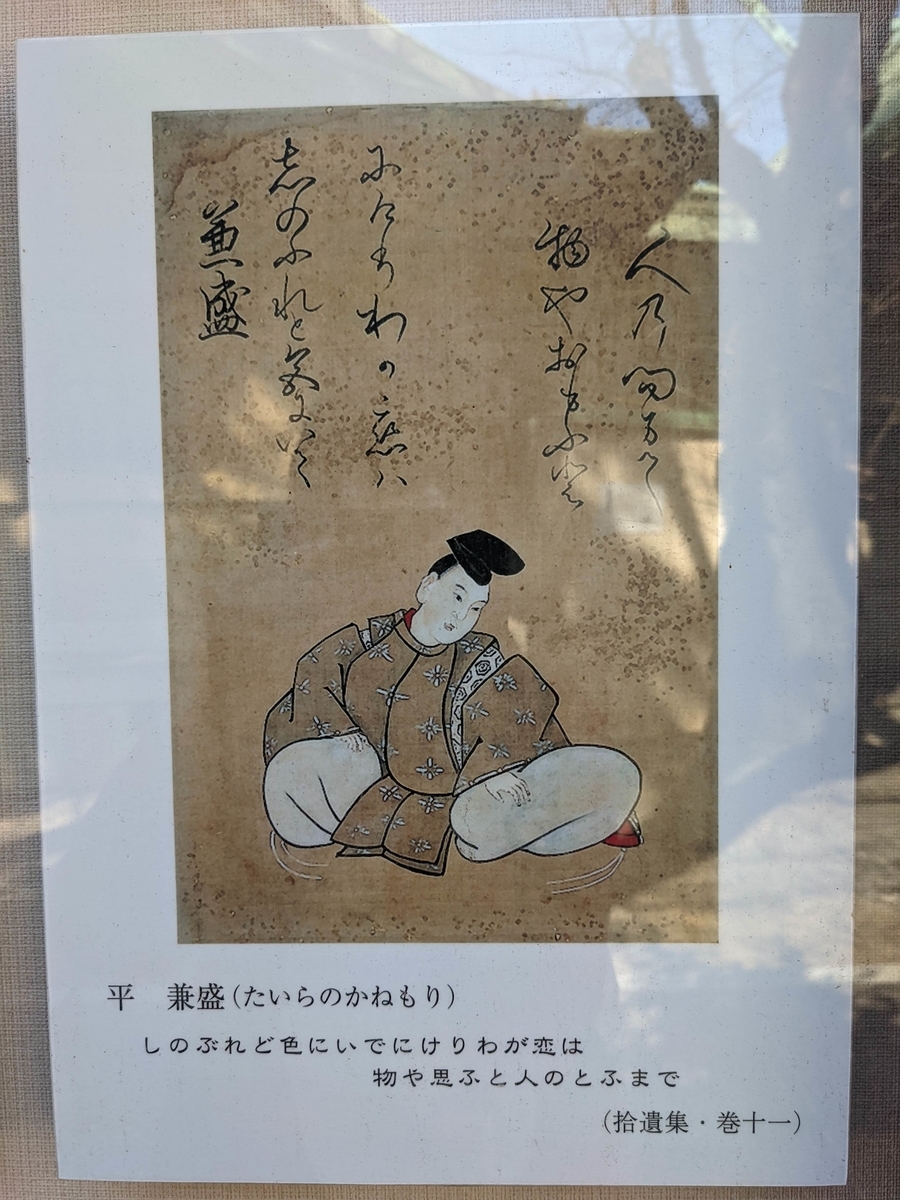 兼盛
志のふれと色にいて
にけりわか恋ハ
物やおもふと
人乃問まて
平 兼盛(たいらのかねもり)
しのぶれど色にいでにけりわが恋は
物や思ふと人のとふまで
(拾遺集・巻十一)